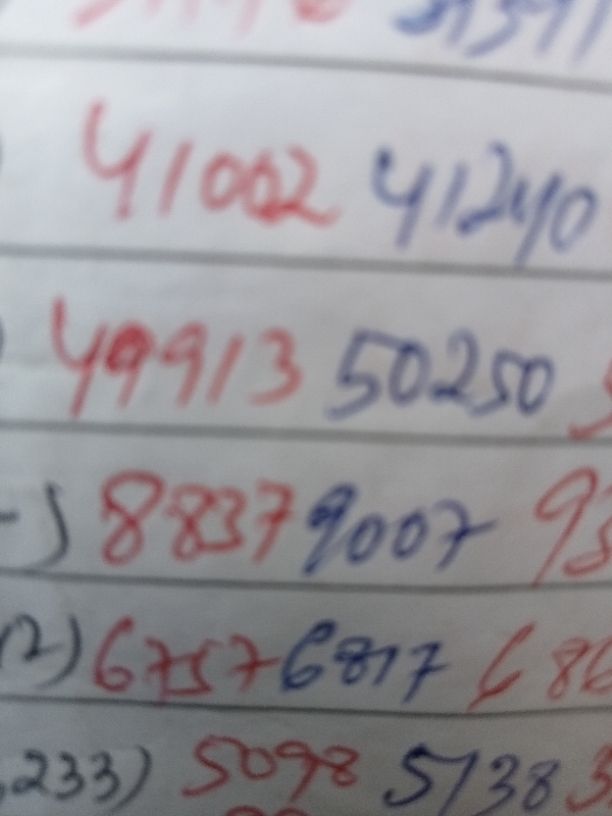 41002 41240
49913 50250
-) 8837 9007 93
12) 6757 6817 686
,233) 5098 5138 5